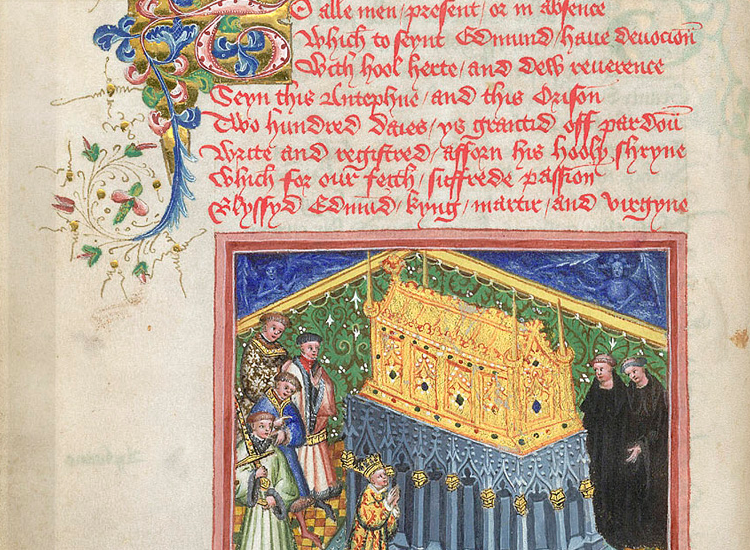 To alle men / present / or in absence
Which to seynt Edmund / haue deuocioū
With hool herte / and dew reuerence
Seyn this Antephne / and this Orison
Two hundred daies / ys grantid off pardoū
Write and registred / afforn his hooly shryne
Which for our feith / suffrede passion
Blyssyd Edmūd / kyng / martir / and virgyne